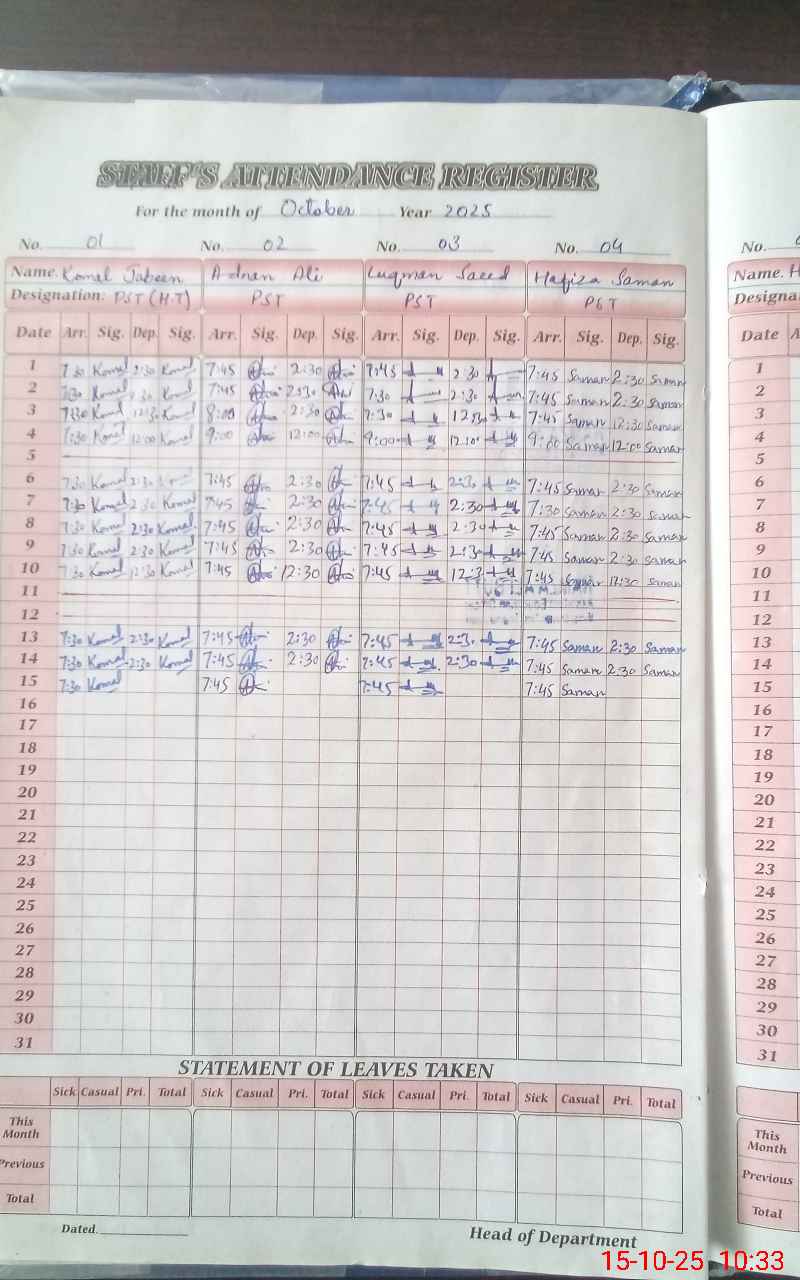 STAFF'S ATTENDANCE REGISTER
For the month of October Year 2025
No. 01 No. 02 No. 03 No. 04 No.
Name. Komal Jabeen Adnan Ali Luqman Saeed Hafiza Saman Name. H
Designation: PST (H.T) PST PST PST Designa
Date Arr. Sig. Dep. Sig. Arr. Sig. Dep. Sig. Arr. Sig. Dep. Sig. Arr. Sig. Dep. Sig. Date A
1 7:30 Komal 2:30 Komal 7:45 2:30 7:45 2:30 7:45 Saman 2:30 Saman 1
2 7:30 Komal 2:30 Komal 7:45 2:30 7:30 2:30 7:45 Saman 2:30 Saman 2
3 7:30 Komal 12:30 Komal 8:00 2:30 7:30 12:30 7:45 Saman 12:30 Saman 3
4 7:30 Komal 12:00 Komal 9:00 12:00 9:00 12:00 9:00 Saman 12:00 Saman 4
5 5
6 7:30 Komal 2:30 7:45 2:30 7:45 2:30 7:45 Saman 2:30 Saman 6
7 7:30 Komal 2:30 Komal 7:45 2:30 7:45 2:30 7:30 Saman 2:30 Saman 7
8 7:30 Komal 2:30 Komal 7:45 2:30 7:45 2:30 7:45 Saman 2:30 Saman 8
9 7:30 Komal 2:30 Komal 7:45 2:30 7:45 2:30 7:45 Saman 2:30 Saman 9
10 7:30 Komal 12:30 Komal 7:45 12:30 7:45 12:3 7:45 Saman 12:30 Saman 10
11 11
12 12
13 7:30 Komal 2:30 Komal 7:45 2:30 7:45 2:30 7:45 Saman 2:30 Saman 13
14 7:30 Komal 2:30 Komal 7:45 2:30 7:45 2:30 7:45 Saman 2:30 Saman 14
15 7:30 Komal 7:45 7:45 7:45 Saman 15
16 16
17 17
18 18
19 19
20 20
21 21
22 22
23 23
24 24
25 25
26 26
27 27
28 28
29 29
30 30
31 31
STATEMENT OF LEAVES TAKEN
Sick Casual Pri. Total Sick Casual Pri. Total Sick Casual Pri. Total Sick Casual Pri. Total
This Month This Month
Previous Previous
Total Total
Dated. Head of Department
15-10-25 10:33